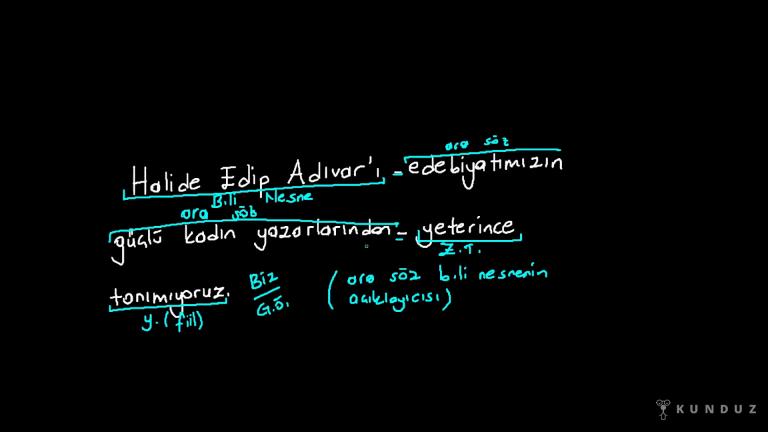 ara söz
Halide Edip Adıvar'ı - edebiyatımızın
Bili Nesne
ara söb
güçlü kadın yazarlarından - yeterince
Z.T.
tanımıyoruz. Biz (ara söz b.li nesnenin
y. (fiil) G.Ö. açıklayıcısı)
KUNDUZ